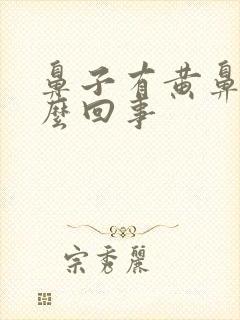 鼻子有黄鼻
麼回事
宗秀麗